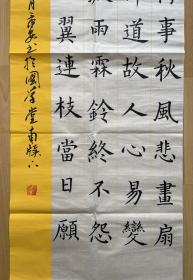 事秋風悲畫扇
道故人心易變
雨霖鈴終不怨
翼連枝當日願
於國學堂南牖下